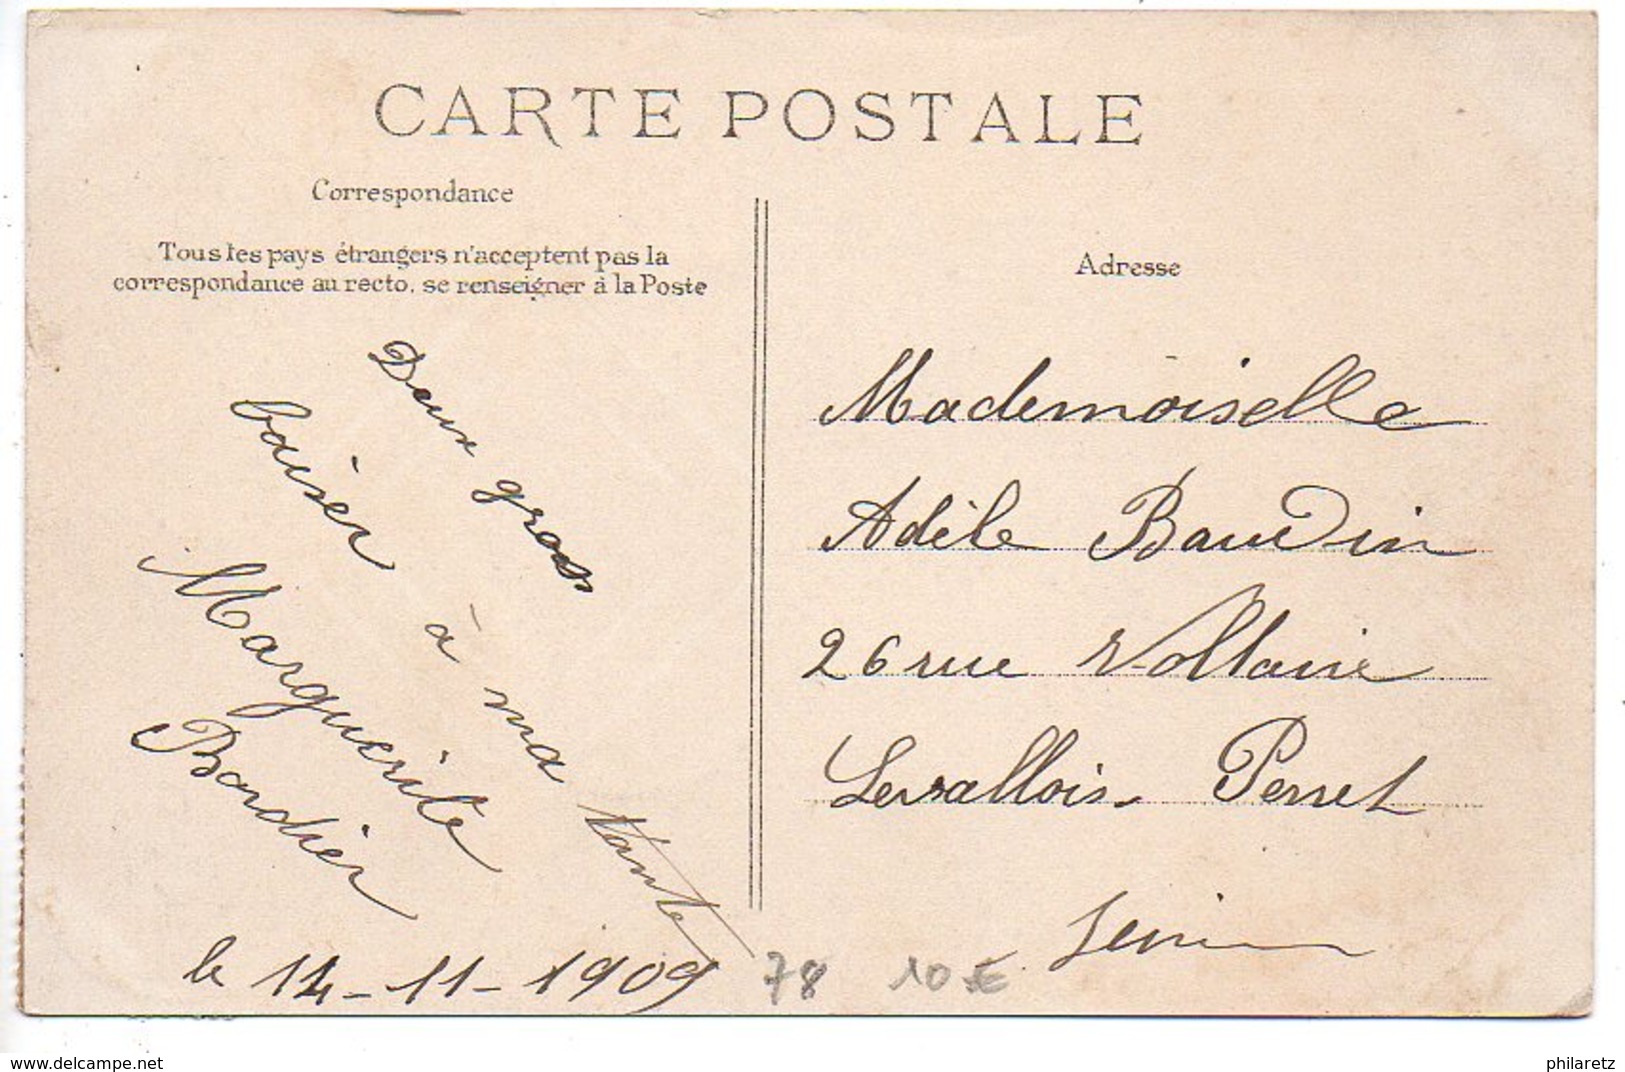 CARTE POSTALE
Correspondance
Tous les pays étrangers n'acceptent pas la
correspondance au recto. se renseigner à la Poste
Deux gros
baiser à ma tante
Marguerite
Bordier
le 14-11-1909
Adresse
Mademoiselle
Adèle Baudin
26 rue Voltaire
Levallois Perret
Seine
78 10 €
www.delcampe.net
philaretz